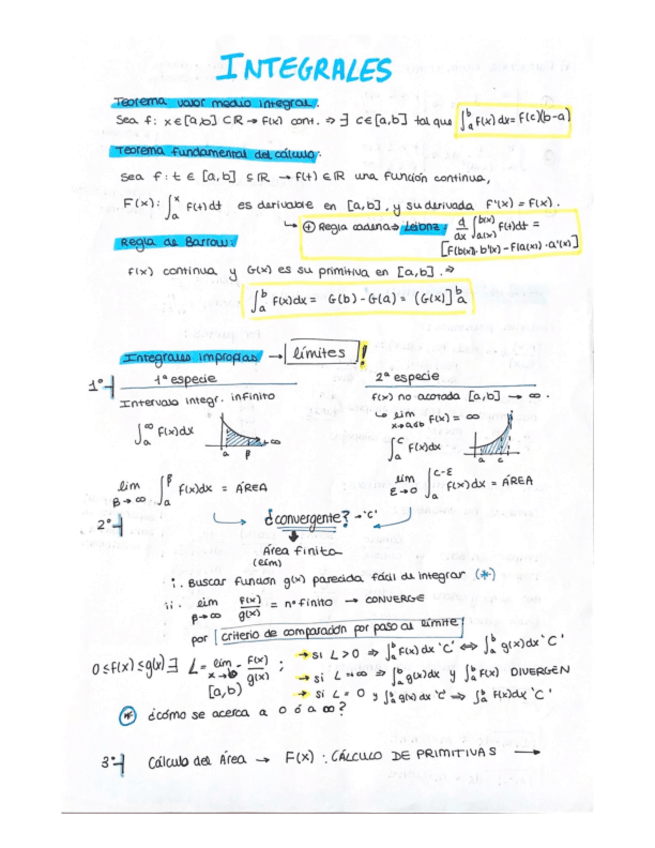 INTEGRALES
Teorema valor medio integral.
Sea f: x ∈ [a,b] ⊂ ℝ → f(x) cont. ⇒ ∃ c ∈ [a,b] tal que ∫_a^b f(x)dx = f(c)(b-a)
Teorema fundamental del cálculo:
Sea f: t ∈ [a,b] ⊆ ℝ → f(t) ∈ ℝ una función continua,
F(x): ∫_a^x f(t)dt es derivable en [a,b], y su derivada F'(x) = f(x).
↳ ⊕ Regla cadena → Leibnz: d/dx ∫_{a(x)}^{b(x)} f(t)dt =
[f(b(x)).b'(x) - f(a(x)).a'(x)]
Regla de Barrow:
f(x) continua y G(x) es su primitiva en [a,b]. ⇒
∫_a^b f(x)dx = G(b) - G(a) = (G(x)]_a^b
Integrales impropias → límites!
1º 1ª especie
Intervalo integr. infinito
∫_a^∞ f(x)dx
a β +∞
lim β→∞ ∫_a^β f(x)dx = ÁREA
2ª especie
f(x) no acotada [a,b] → ∞.
↳ lim f(x) = ∞
∫_a^c f(x)dx
a c
lim ε→0 ∫_a^{c-ε} f(x)dx = ÁREA
2º ¿convergente? → 'C'
Área finita
(lim)
i. Buscar función g(x) parecida fácil de integrar (*)
ii. lim β→∞ f(x)/g(x) = nº finito → CONVERGE
por criterio de comparación por paso al límite
0 ≤ f(x) ≤ g(x) ∃ L = lim x→b f(x)/g(x) ;
[a,b)
→ si L > 0 ⇒ ∫_a^b f(x)dx 'C' ⇔ ∫_a^b g(x)dx 'C'
→ si L = ∞ ⇒ ∫_a^b g(x)dx y ∫_a^b f(x) DIVERGEN
→ si L = 0 y ∫_a^b g(x)dx 'C' ⇒ ∫_a^b f(x)dx 'C'
(*) ¿cómo se acerca a 0 ó a ∞?
3º Cálculo del Área → F(x): CÁLCULO DE PRIMITIVAS →